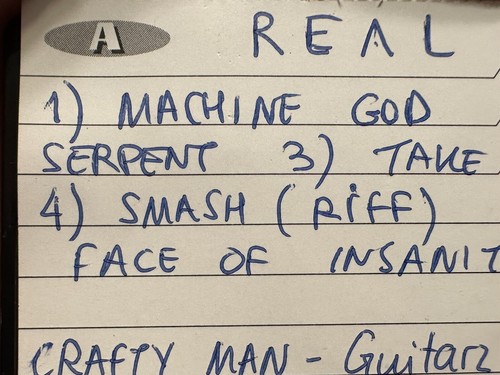 A REAL
1) MACHINE GOD
SERPENT 3) TAKE
4) SMASH (RIFF)
FACE OF INSANIT
CRAFTY MAN - Guitarz